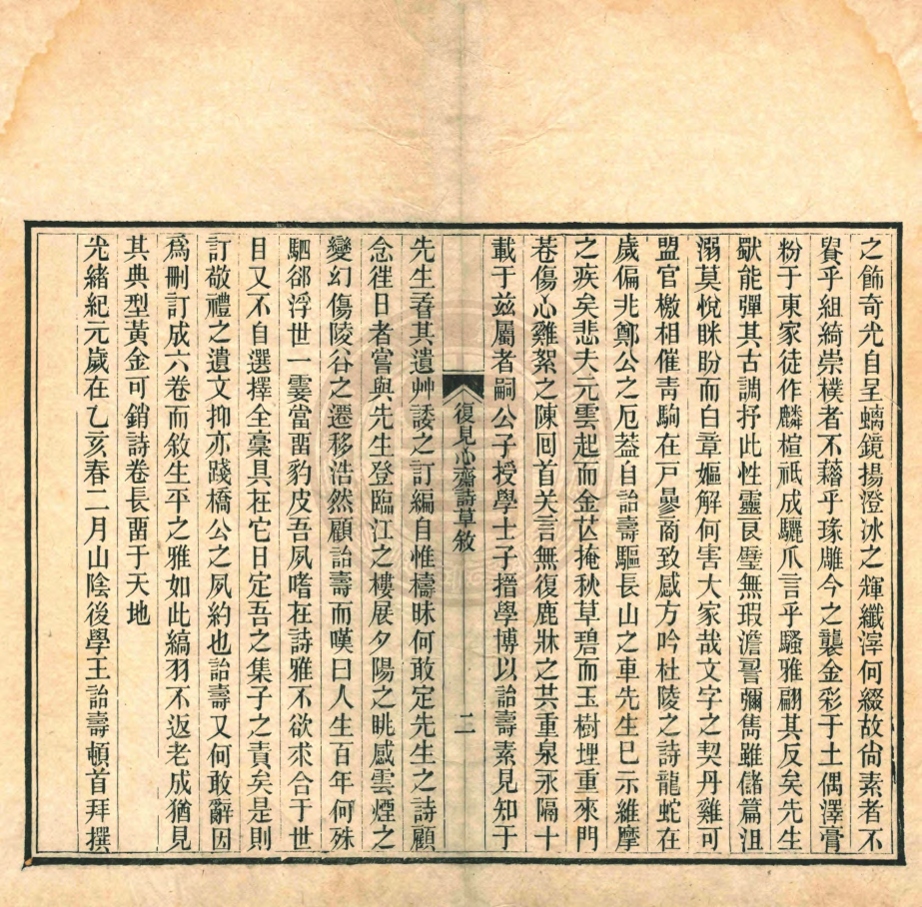 之飾奇光自呈螭鏡揚澄冰之輝纖滓何綴故尙素者不
貴乎組綺崇樸者不藉乎瑑雕今之襲金彩于土偶澤膏
粉于東家徒作麟楦祇成驪爪言乎騷雅翩其反矣先生
獃能彈其古調抒此性靈㫐璧無瑕澹詈彌雋雖儲篇沮
溺莫悅眯盼而白章嫗解何害大家哉文字之契丹雞可
盟官檄相催靑駒在戸曑商致感方吟杜陵之詩龍蛇在
歲偏兆鄭公之厄葢自詒壽驅長山之車先生巳示維摩
之疾矣悲夫元雲起而金苡掩秋草碧而玉樹埋重來門
巷傷心雞絮之陳囘首关言無復鹿牀之共重泉永隔十
載于兹屬者嗣公子授學士子搢學博以詒壽素見知于
復見心齋詩草敘
二
先生䝴其遺艸諉之訂編自惟檮昧何敢定先生之詩顧
念徃日者嘗與先生登臨江之樓展夕陽之眺感雲煙之
變幻傷陵谷之遷移浩然顧詒壽而嘆曰人生百年何殊
駟郤浮世一霎當畱豹皮吾夙嗜在詩雅不欲求合于世
目又不自選擇全稾具在它日定吾之集子之責矣是則
訂敬禮之遺文抑亦踐橋公之夙約也詒壽又何敢辭因
爲刪訂成六卷而敘生平之雅如此縞羽不返老成猶見
其典型黃金可銷詩卷長畱于天地
光緒紀元歲在乙亥春二月山陰後學王詒壽頓首拜撰